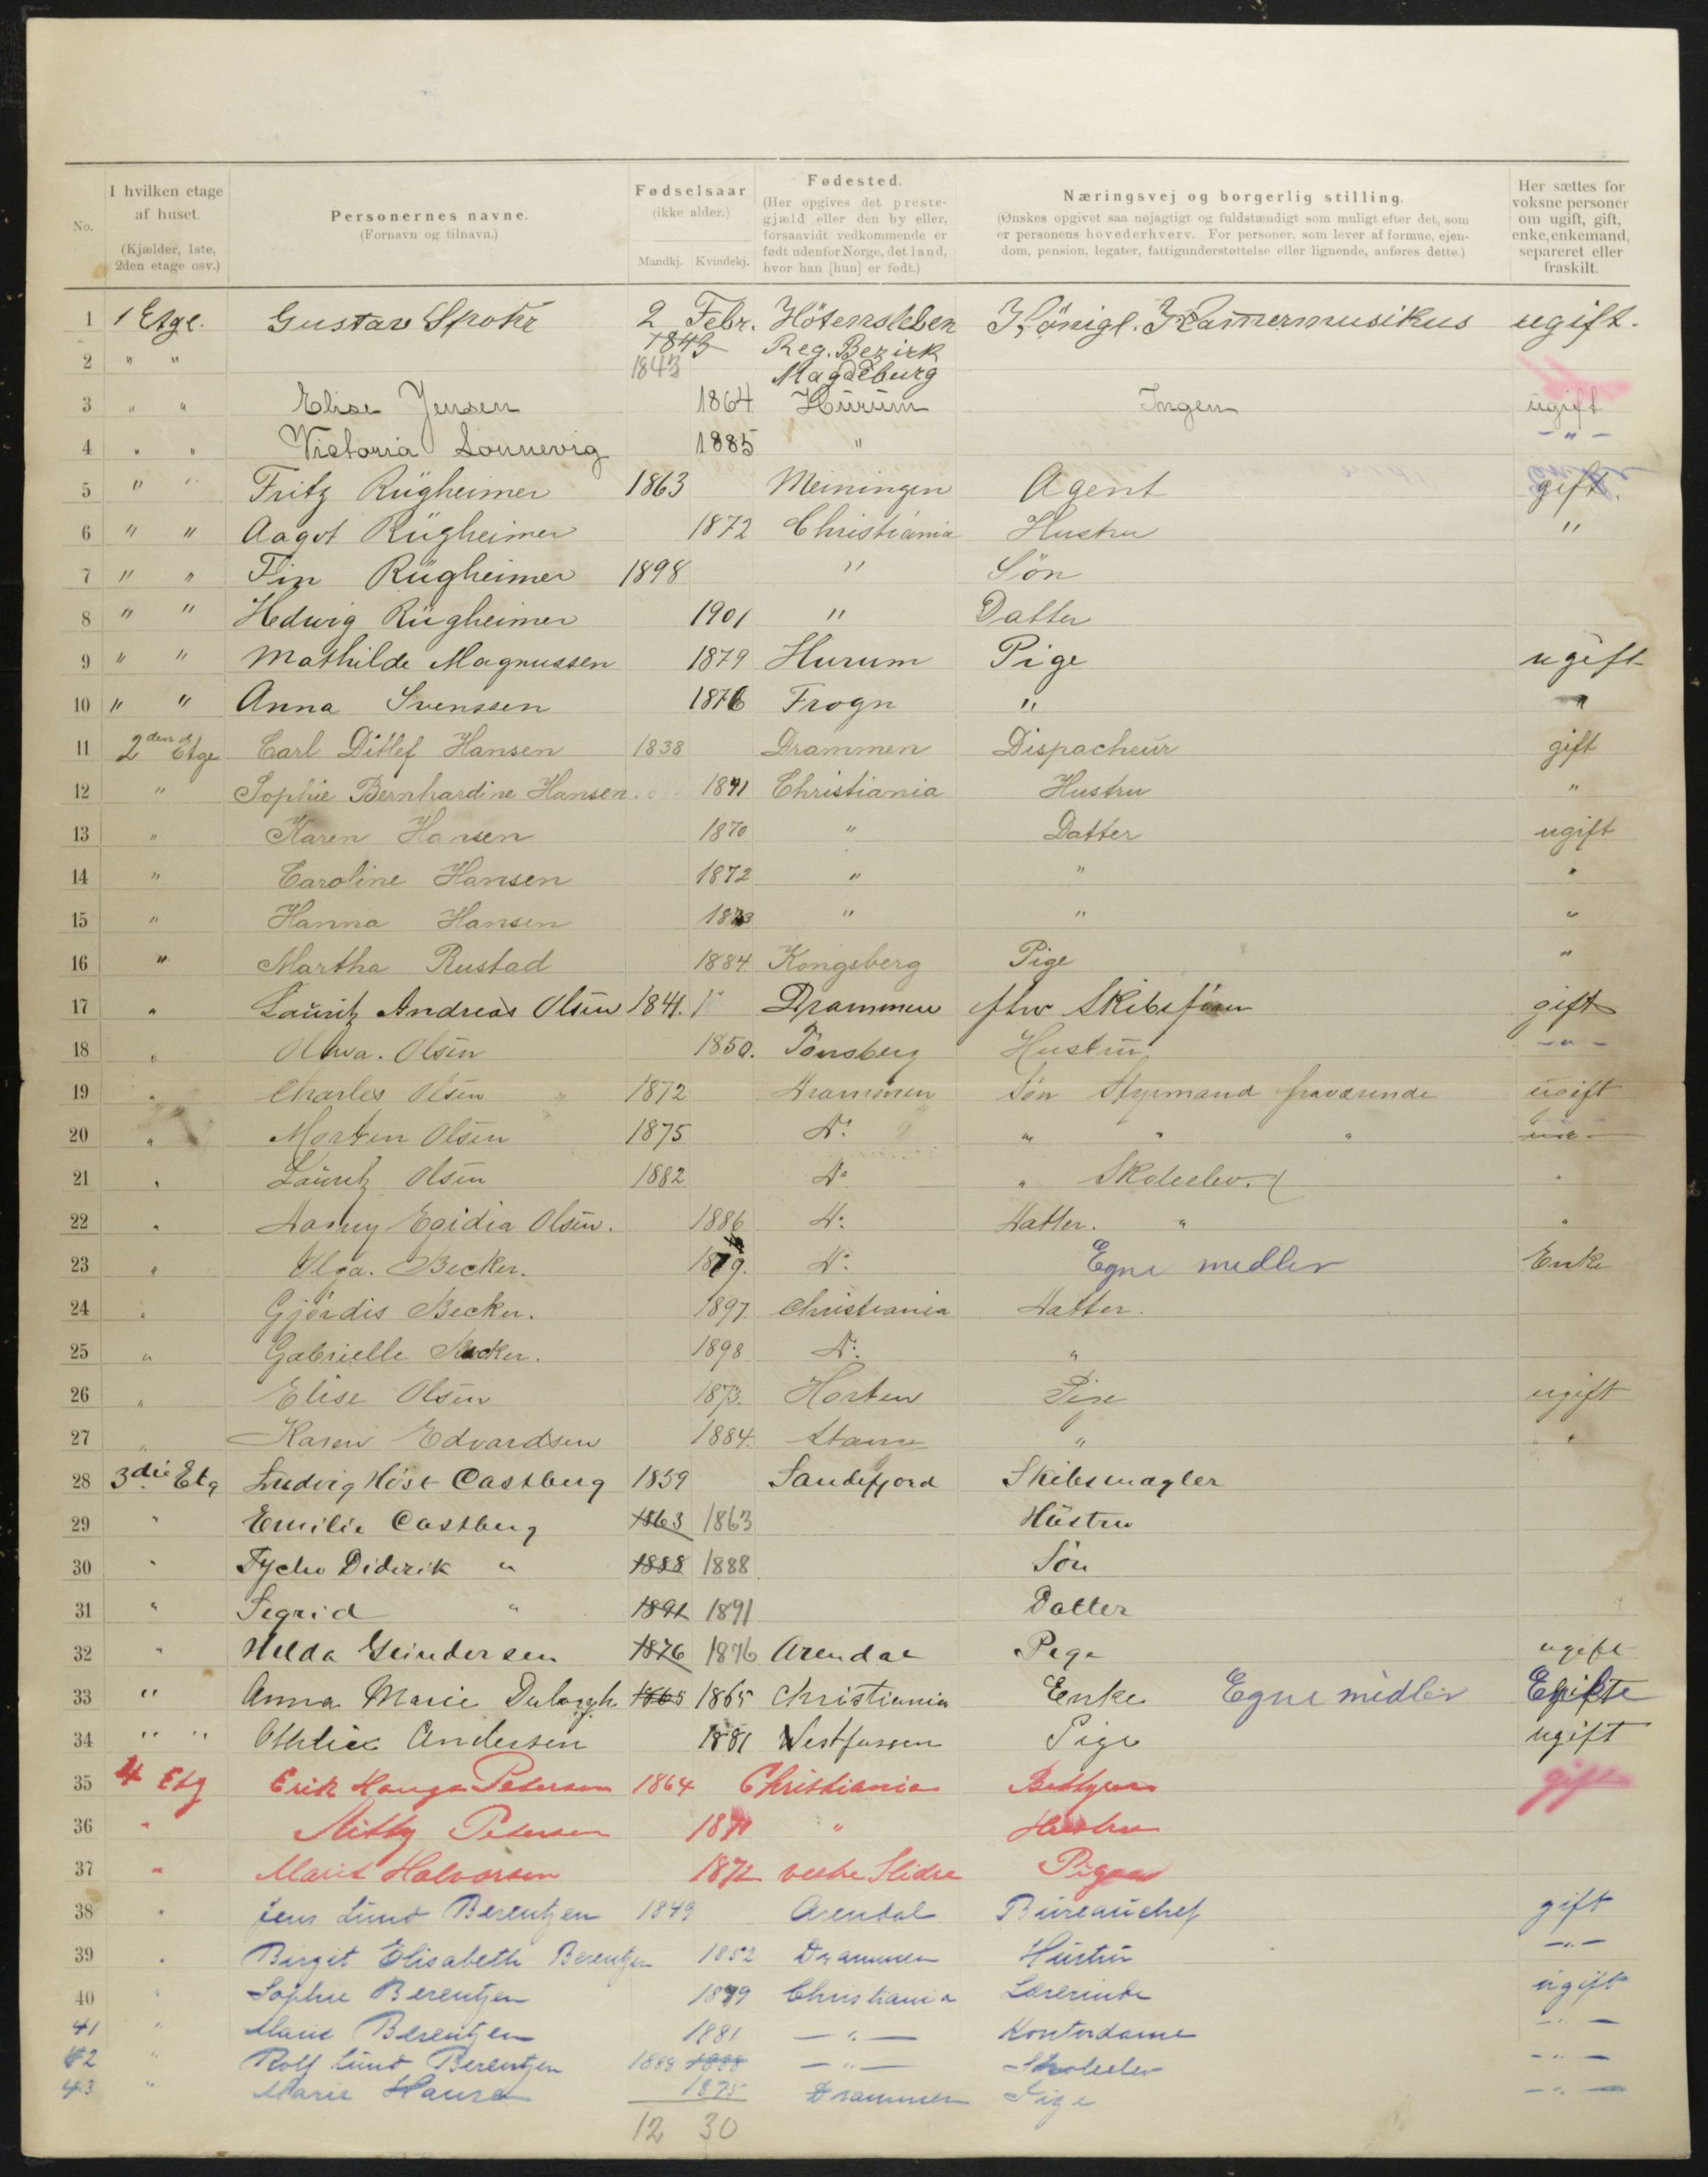 No.
I hvilken etage af huset. (Kjælder, 1ste, 2den etage osv.)
Personernes navne. (Fornavn og tilnavn.)
Fødselsaar (ikke alder.) Mandkj. Kvindekj.
Fødested. (Her opgives det prestegjæld eller den by eller, forsaavidt vedkommende er født udenfor Norge, det land, hvor han [hun] er født.)
Næringsvej og borgerlig stilling. (Ønskes opgivet saa nøjagtigt og fuldstændigt som muligt efter det, som er personens hovederhverv. For personer, som lever af formue, ejendom, pension, legater, fattigunderstøttelse eller lignende, anføres dette.)
Her sættes for voksne personer om ugift, gift, enke, enkemand, separeret eller fraskilt.
1 1 Etge. Gustav Spohr 2 Febr. Hötensleben Königl. Kammermusikus ugift.
1843 Reg. Bezirk
2 " " 1843 Magdeburg
3 " " Elise Jensen 1864 Hurum Ingen ugift
4 " " Victoria Sonnevig 1885 " - " -
5 " " Fritz Rügheimer 1863 Meiningen Agent gift.
6 " " Aagot Rügheimer 1872 Christiania Hustru "
7 " " Fin Rügheimer 1898 " Sön
8 " " Hedwig Rügheimer 1901 " Datter
9 " " Mathilde Magnussen 1879 Hurum Pige ugift
10 " " Anna Svenssen 1876 Frogn " "
11 2den Etge Carl Ditlef Hansen 1838 Drammen Dispacheur gift
12 " Sophie Bernhardine Hansen. 1841 Christiania Hustru "
13 " Karen Hansen 1870 " Datter ugift
14 " Caroline Hansen 1872 " " "
15 " Hanna Hansen 1873 " " "
16 " Martha Rustad 1884 Kongsberg Pige "
17 " Lauritz Andreas Olsen 1841. Drammen Skibsfører gift
18 " Olsen 1850. Tønsberg Hustru - " -
19 " Charles Olsen 1872 Drammen Søn Styrmand fraværende ugift
20 " Morten Olsen 1875 Do " " "
21 " Lauritz Olsen 1882 Do " Skoleelev. "
22 " Dagny Egidia Olsen. 1886 Do Datter. " "
23 " Olga. Becker. 1879. Do Egne midler Enke
24 " Gjørdis Becker. 1897. Christiania Datter.
25 " Gabrielle Becker. 1898 Do "
26 " Elise Olsen 1873. Horten Pige ugift
27 " Karen Edvardsen 1884. " "
28 3die Etg Ludvig Høst Castberg 1859 Sandefjord Skibsmægler
29 " Emilie Castberg 1863 1863 Hustru
30 " Tycho Diderik " 1888 1888 Sön
31 " Segrid " 1891 1891 Datter
32 " Hilda Geindersen 1876 1876 Arendal Pige ugift
33 " Anna Marie 1865 1865 Christiania Enke Egne midler
34 " " Othilie Andersen 1881 Vestfossen Pige ugift
35 4 Etg Erik Hauge Petersen 1864 Christiania Bestyrer gift
36 " Petersen 1871 " Hustru
37 " Marit Halvorsen 1872 vestre Slidre Pige
38 " Jens Lund Berentzen 1849 Arendal Bureauchef gift
39 " Birgit Elisabeth Berentzen 1852 Drammen Hustru - " -
40 " Sophie Berentzen 1879 Christiania Lærerinde ugift
41 " Marie Berentzen 1881 - " - Kontordame - " -
42 " Rolf Lund Berentzen 1888 1888 - " - Skoleelev - " -
43 " Marie Hansen 1875 Drammen Pige - " -
12 30